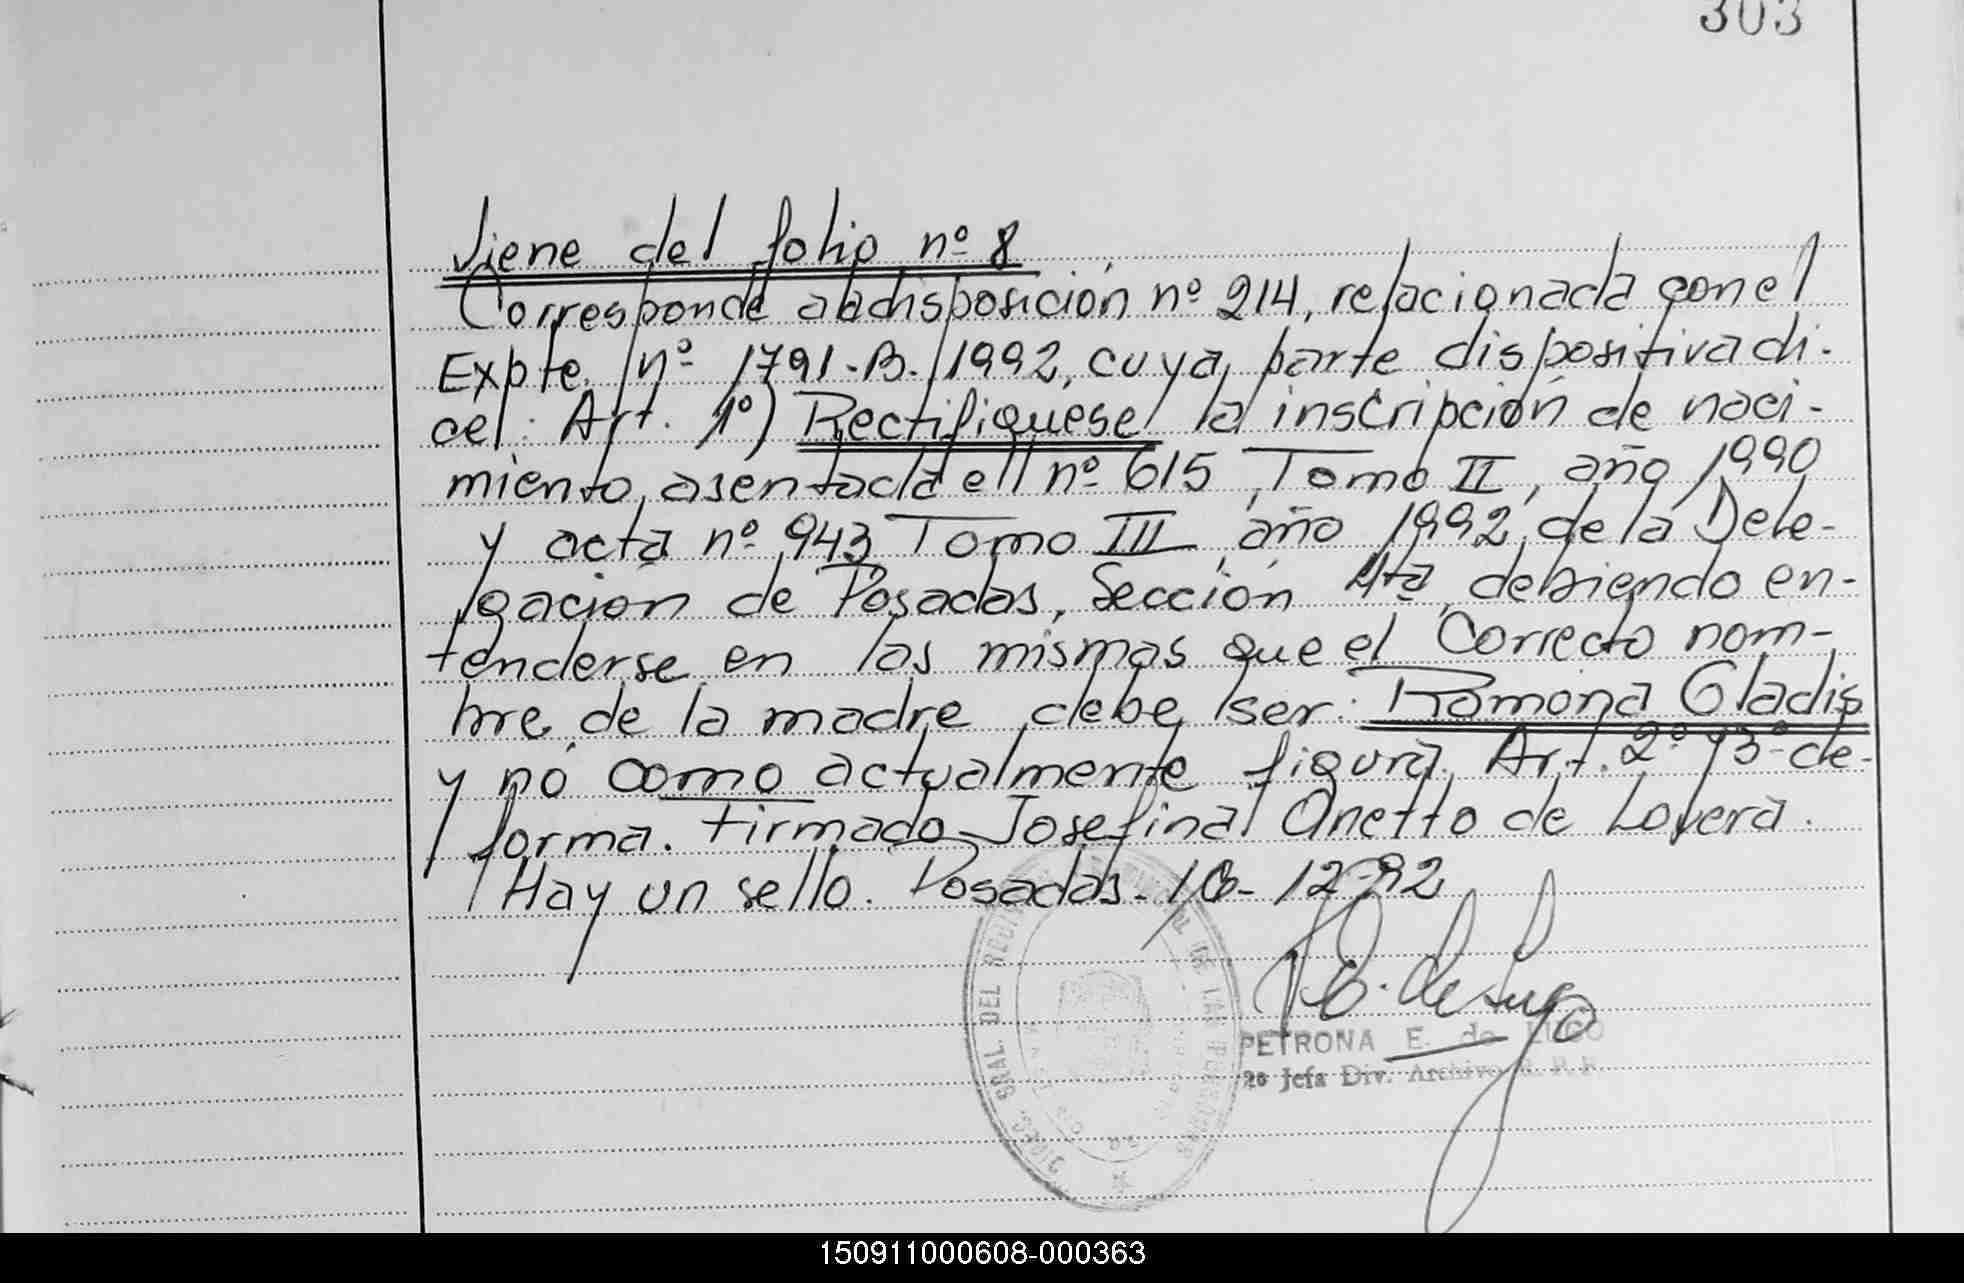 303
Viene del folio nº 8
Corresponde a la disposición nº 214, relacionada con el
Expte. nº 1791-B-/1992, cuya parte dispositiva di-
ce: Art. 1º) Rectifiquese la inscripción de naci-
miento, asentada en nº 615 Tomo II, año 1990
y acta nº 943 Tomo III año 1992, de la Dele-
gación de Posadas, Sección 4ta, debiendo en-
tenderse en las mismas que el Correcto nom-
bre de la madre debe ser: Ramona Gladis
y nó como actualmente figura. Art. 2º y 3º de
forma. Firmado Josefina Onetto de Lovera.
Hay un sello. Posadas. 10-12-92
P.E. de Lugo
PETRONA E. de LUGO
Jefa Div. Archivo R. P. P.
DIREC. GRAL. DEL REGIS DE LAS PERSONAS
150911000608-000363